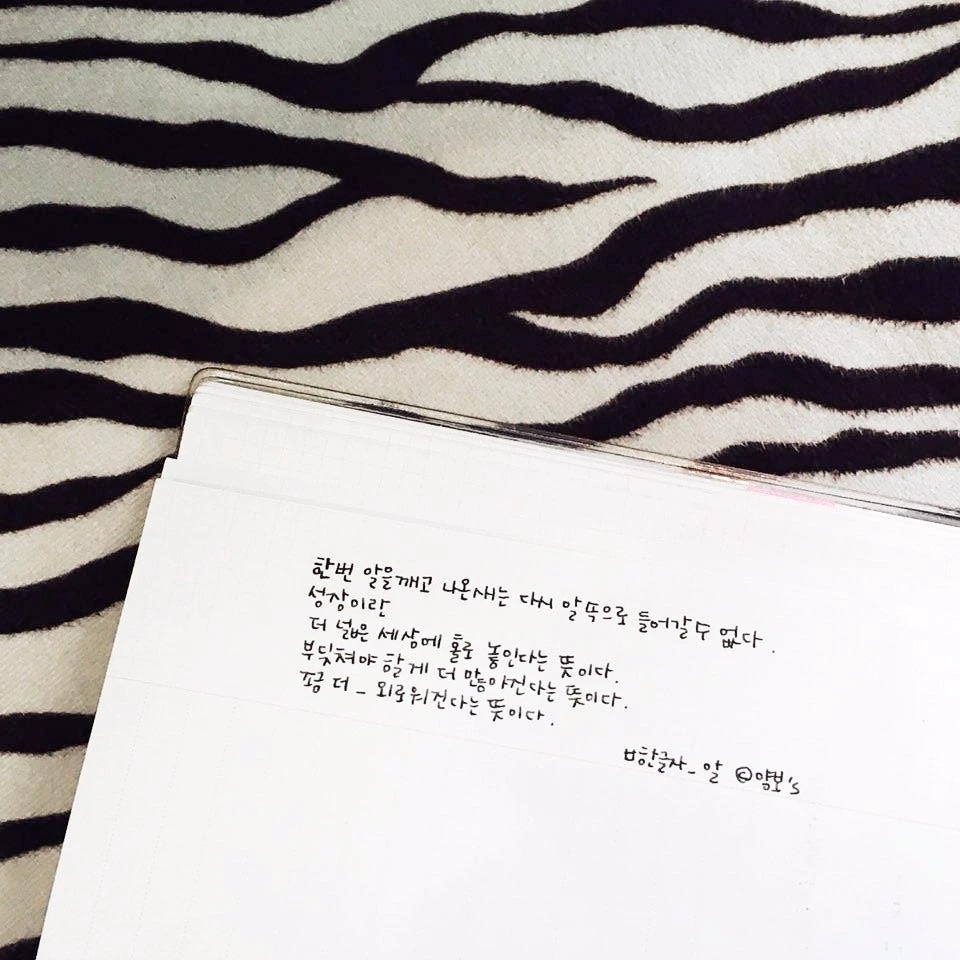 한번 알을깨고 나온새는 다시 알 쪽으로 들어갈수 없다.
성장이란
더 넓은 세상에 홀로 놓인다는 뜻이다.
부딪쳐야 할게 더 많아진다는 뜻이다.
조금 더 _ 외로워진다는 뜻이다.
한글자_ 알 ©얌보's